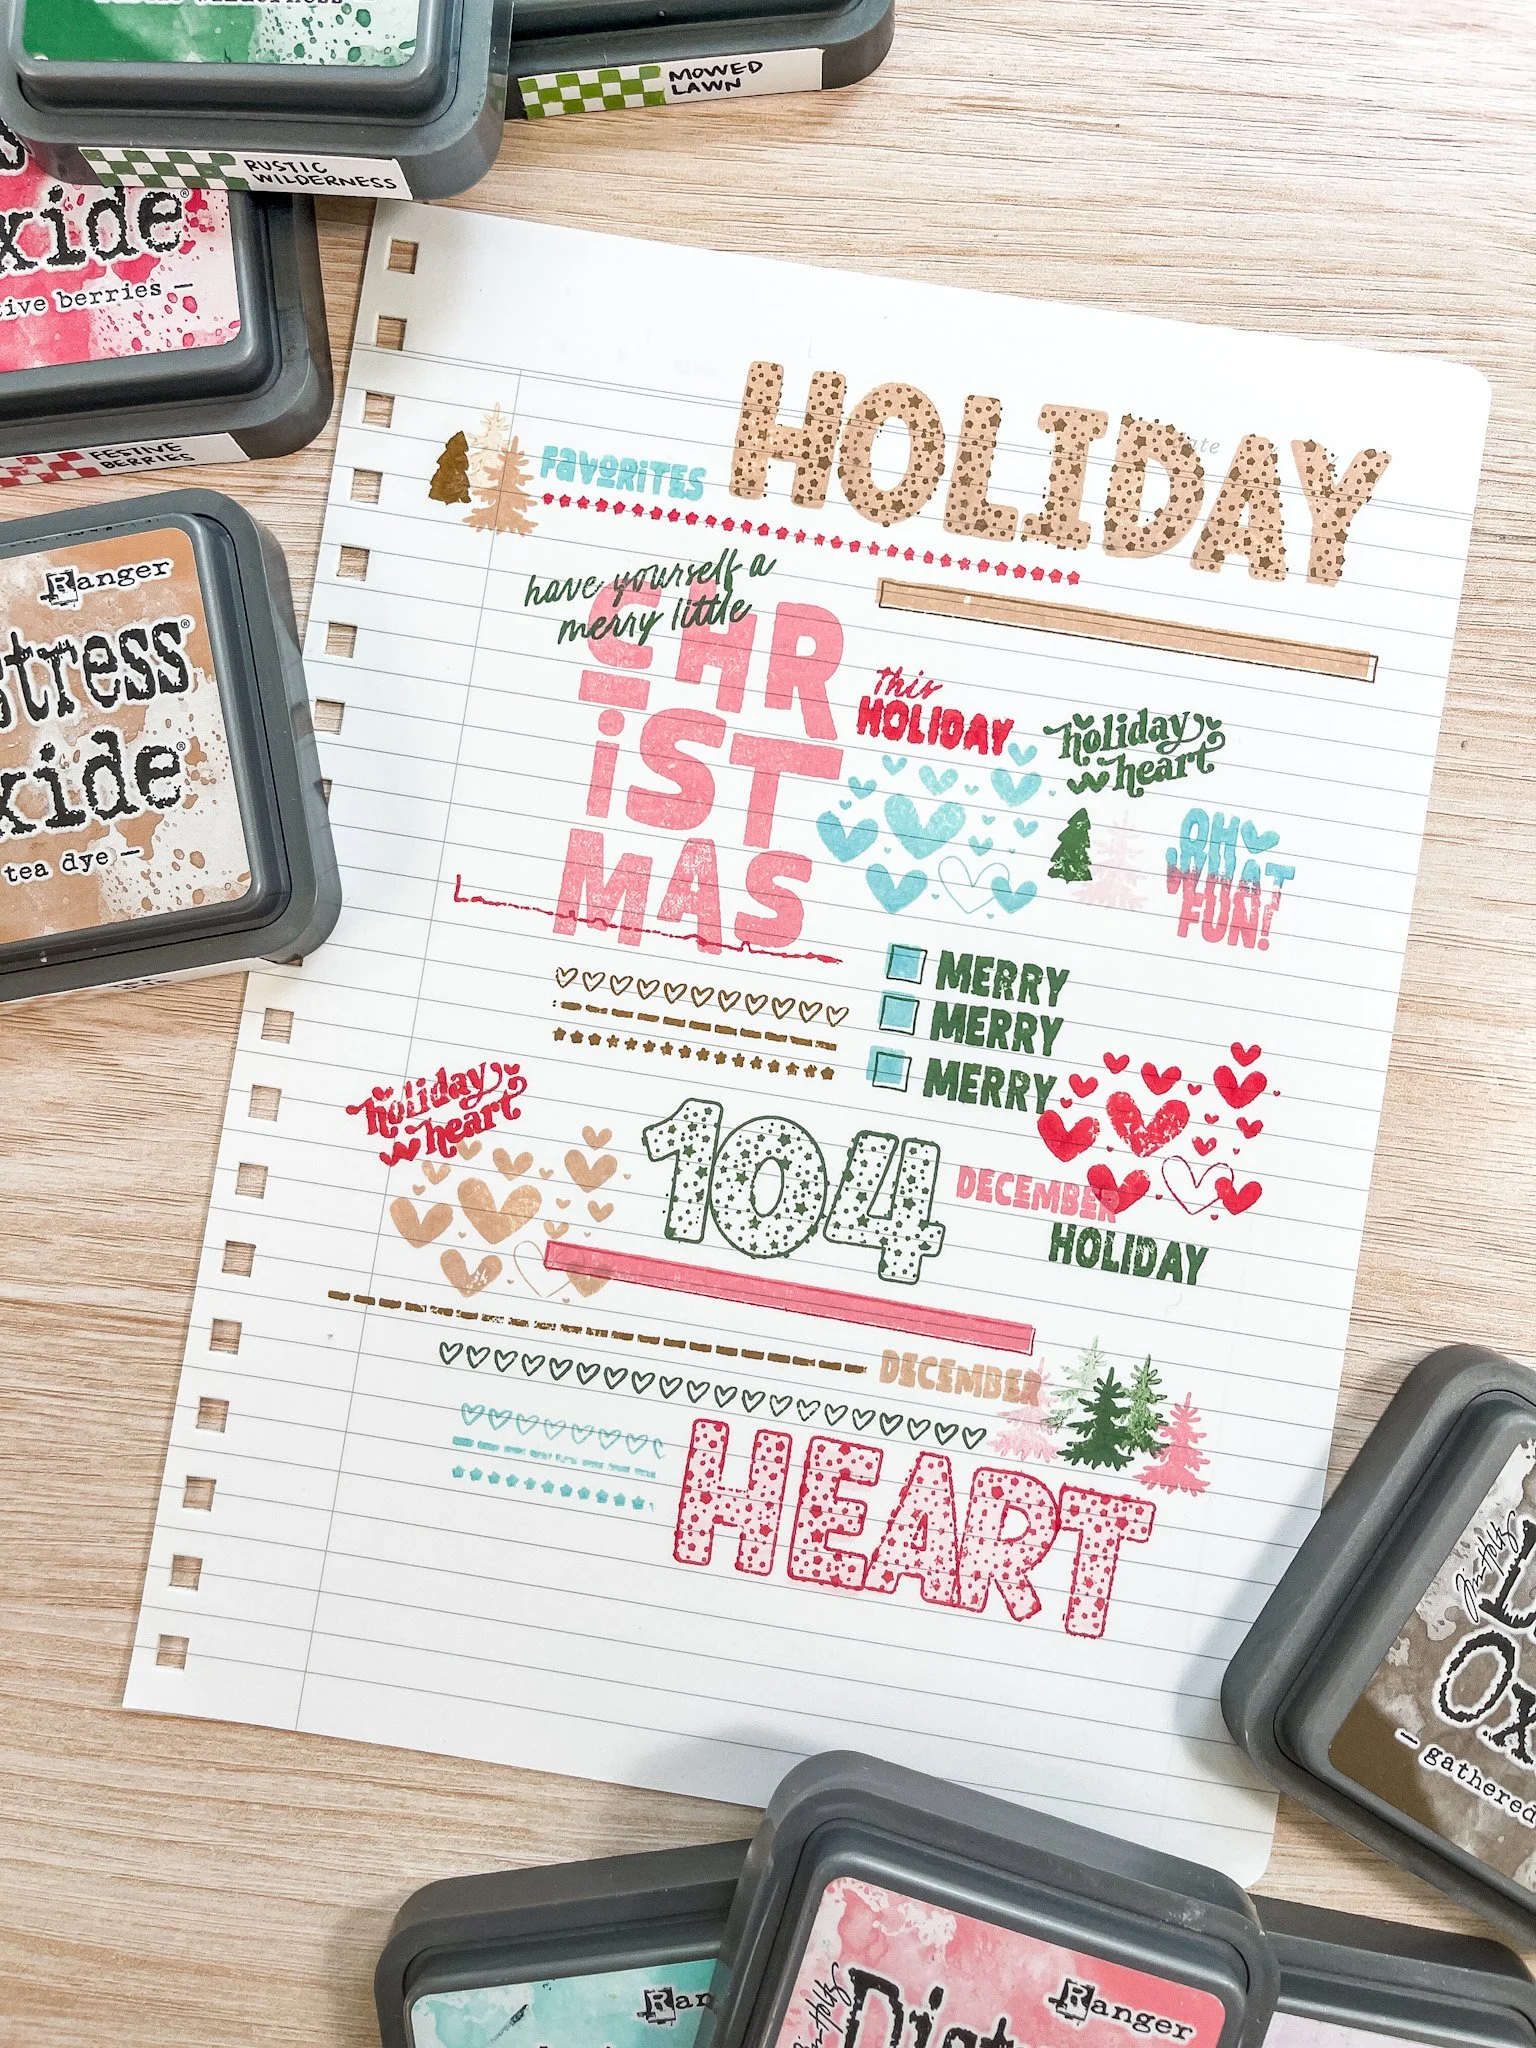 MOWED
LAWN
RUSTIC
WILDERNESS
xide®
tive berries —
FESTIVE
BERRIES
Ranger
stress®
xide®
tea dye —
FAVORITES
HOLIDAY
have yourself a
merry little
CHR
iST
MAS
This
HOLIDAY
holiday
heart
OH
WHAT
FUN!
MERRY
MERRY
MERRY
holiday
heart
104
DECEMBER
HOLIDAY
DECEMBER
HEART
Tim Holtz
D
Ox
— gathered
Ran
Tim Holtz
Dist
Ranger